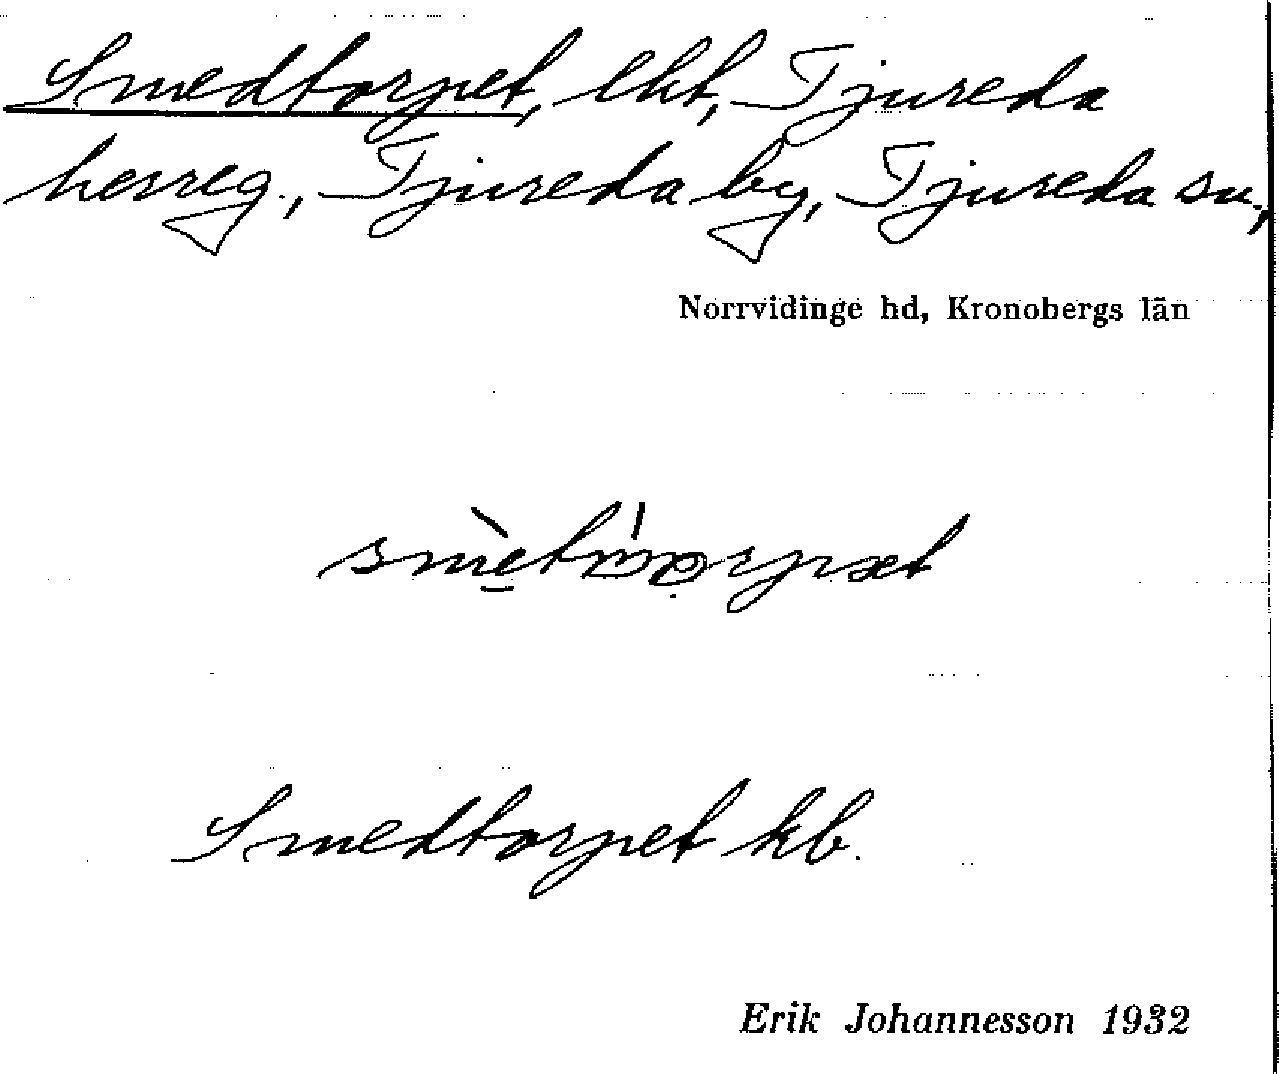 Smedtorpet, lht, Tjureda
herreg., Tjureda by, Tjureda sn,
Norrvidinge hd, Kronobergs län
Smedtorpet kb.
Erik Johannesson 1932